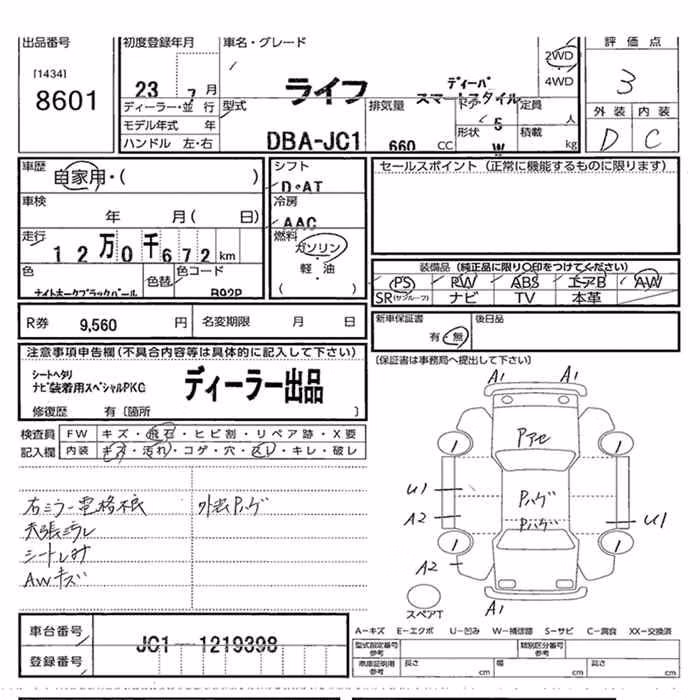 出品番号
[1434]
8601
初度登録年月
23 7 月
車名・グレード
ライフ
ディーバ
スマートスタイル
2WD
・
4WD
評価点
3
外装 内装
D C
ディーラー・並行
モデル年式 年
ハンドル 左・右
型式
DBA-JC1
排気量
660 CC
ドア
5
形状
W
定員
人
積載
kg
車歴
自家用・( )
車検
年 月( 日)
走行
12万0千672 km
色
ナイトホークブラックパール
色替
色コード
B92P
シフト
D・AT
冷房
AAC
燃料
ガソリン・
軽・油
( )
セールスポイント (正常に機能するものに限ります)
装備品 (純正品に限り○印をつけてください)
PS PW ABS エアB AW
SR(サンルーフ) ナビ TV 本革
R券 9,560 円 名変期限 月 日
新車保証書
有・無
後日品
(保証書は事務局へ提出して下さい)
注意事項申告欄(不具合内容等は具体的に記入して下さい)
シートヘタリ
ナビ装着用スペシャルPKG
ディーラー出品
修復歴 有〔箇所 〕
検査員
記入欄
FW キズ・飛石・ヒビ割・リペア跡・X要
内装 キズ・汚れ・コゲ・穴・スレ・キレ・破レ
右ミラー電格不良
天張ミラレ
シートレオ
AWキズ
外装Pハゲ
A1 A1
Pアセ
1 1
U1
Pハゲ
Pハゲ
A2
U1
1 1
A2
A1
スペアT
車台番号
JC1-1219398
登録番号
A-キズ E-エクボ U-凹み W-補修跡 S-サビ C-腐食 XX-交換済
型式指定番号
参考
類別区分番号
参考
車庫証明用
参考
長さ cm 幅 cm 高さ cm